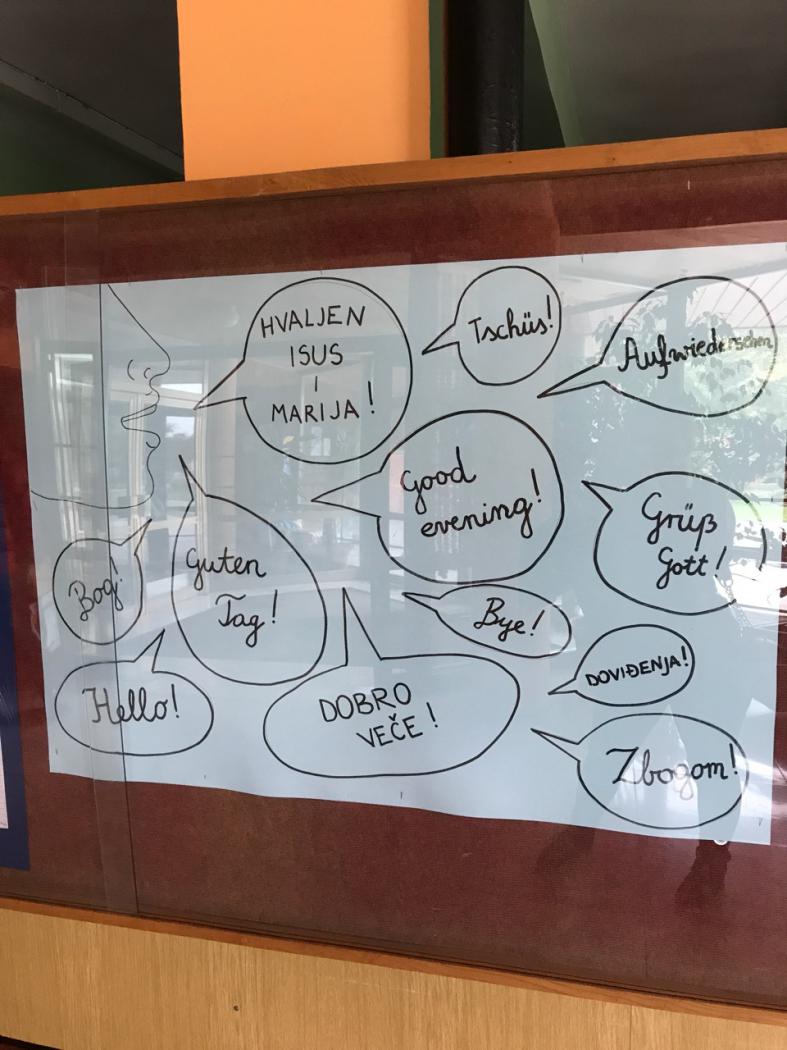 HVALJEN
ISUS
I
MARIJA!
Tschüs!
Aufwiedersehen
Good
evening!
Grüß
Gott!
Bog!
Guten
Tag!
Bye!
Hello!
DOBRO
VEČE!
DOVIĐENJA!
Zbogom!